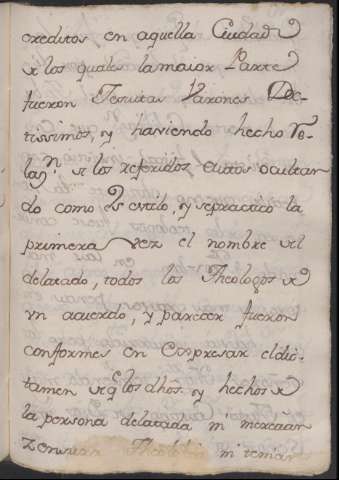 creditos en aquella Ciudad
de los quales la maior Parte
fueron Jesuitas Varones Doc-
tissimos, y haviendo hecho Re-
lazn. de los referidos autos ocultan
do como es estilo, y se practicó la
primera vez el nombre del
delatado, todos los Theologos de
vn acuerdo, y parecer fueron
conformes en expresar el dic-
tamen de q los dhos. y hechos de
la persona delatada ni merecian
Zensura Theoloxa ni tenian